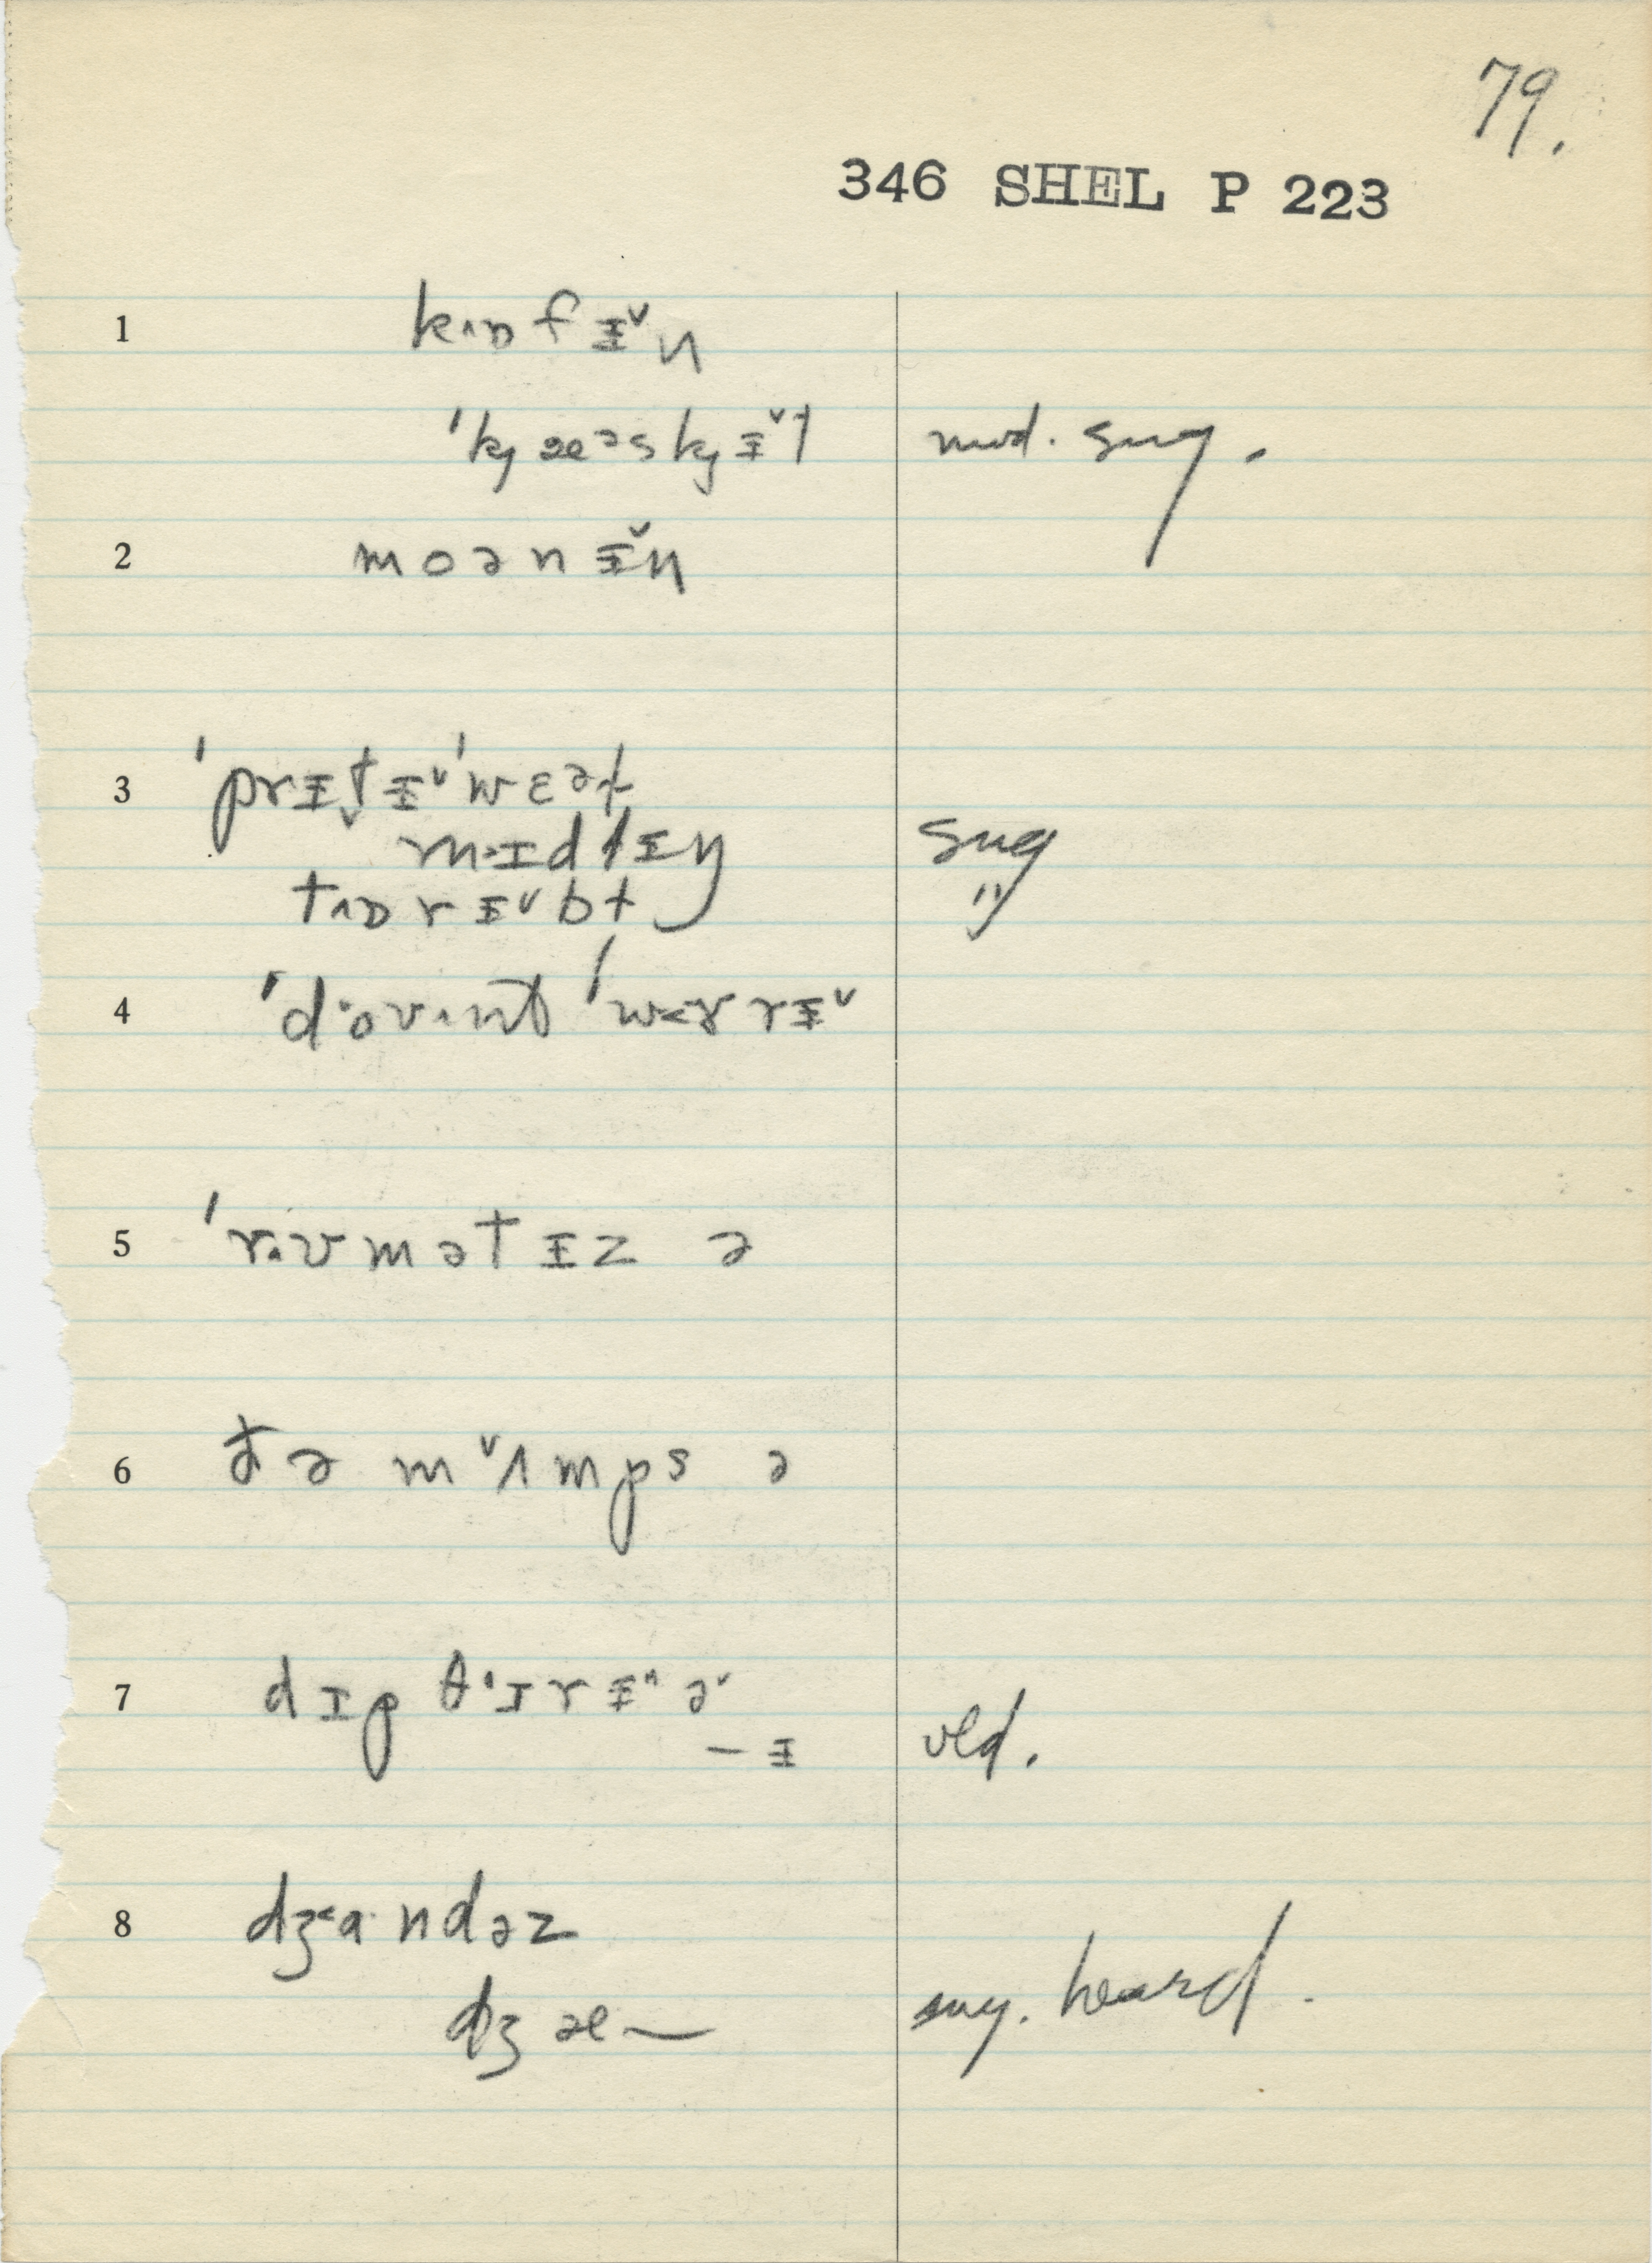 79.
346 SHEL P 223
1 kʌɒfɪ̵˅n
ˈkj æəskjɪ̵˅t mod. sug.
2 moənɪ̵˅n
3 ˈprɪ̵t̬ɪ̵˅ˈwɛət
m·ɪdlɪ̵ŋ sug
tʌɒrɪ̵˅bt "
4 ˈd·oʊ·nt ˈwɤrrɪ̵˅
5 ˈr·ʊmətɪ̵z ə
6 ðə m˅ʌmps ə
7 dɪp θ˄ɪrɪ̵˄ə˅
— ɪ̵ old.
8 dʒ˂a·ndəz
dʒæ— sug. heard.